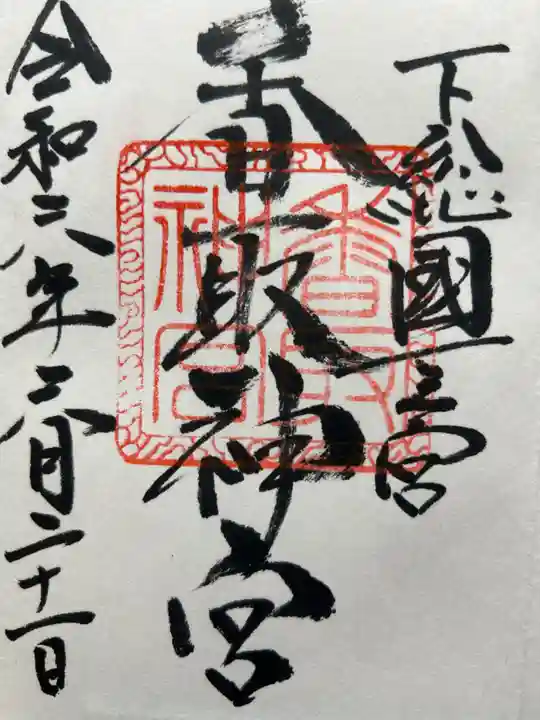 下総國一之宮
香取神宮
香取神宮
令和六年二月二十一日